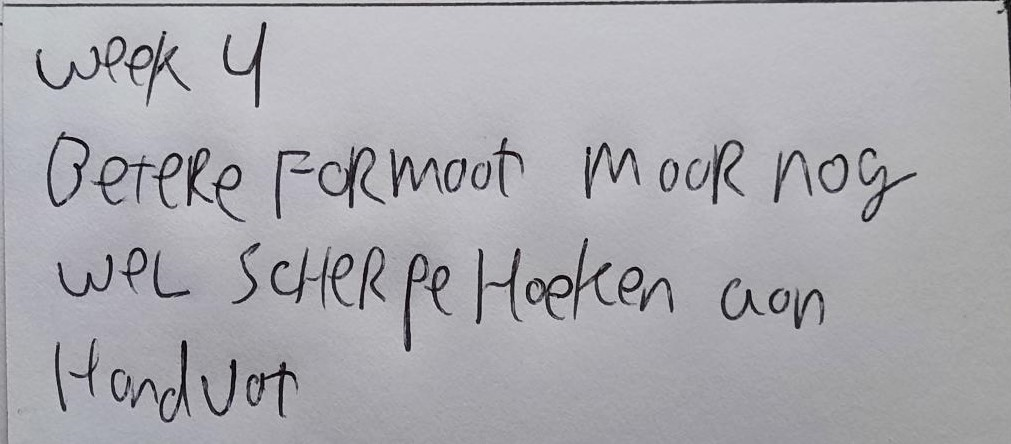 week 4
Betere Formaat maar nog
wel scherpe Hoeken aan
Handvat